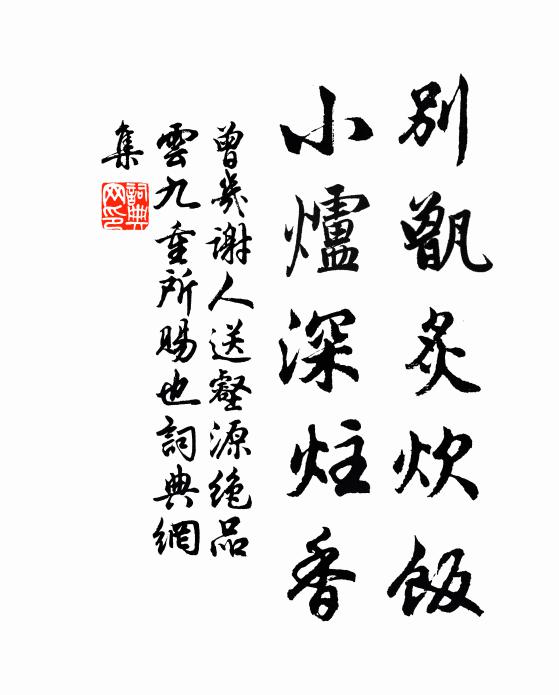 別甑炙炊飯
小爐深炷香
曾幾謝人送壑源絶品
雲九重所賜也詞典網
集
詞典
网印